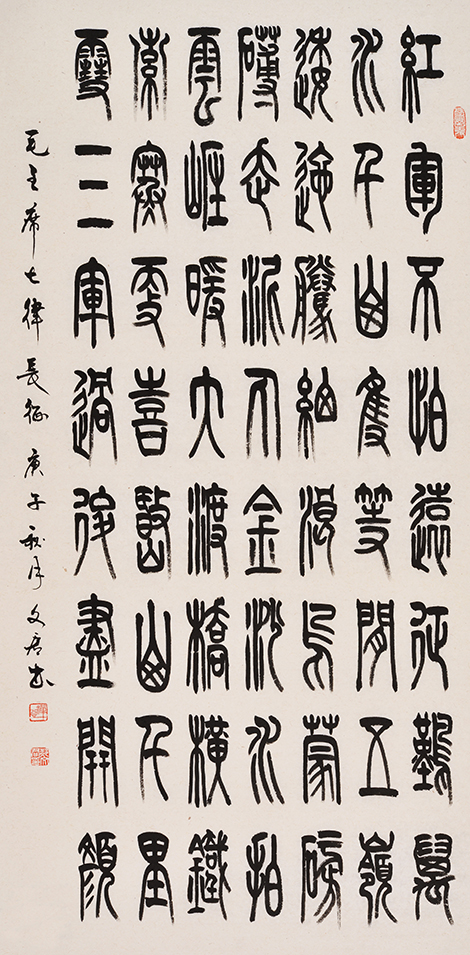 紅軍不怕遠征難萬
水千山隻等閒五嶺
逶迤騰細浪烏蒙磅
礴走泥丸金沙水拍
雲崖暖大渡橋橫鐵
索寒更喜岷山千里
雪三軍過後盡開顏
毛主席七律長征 庚午秋月 文书